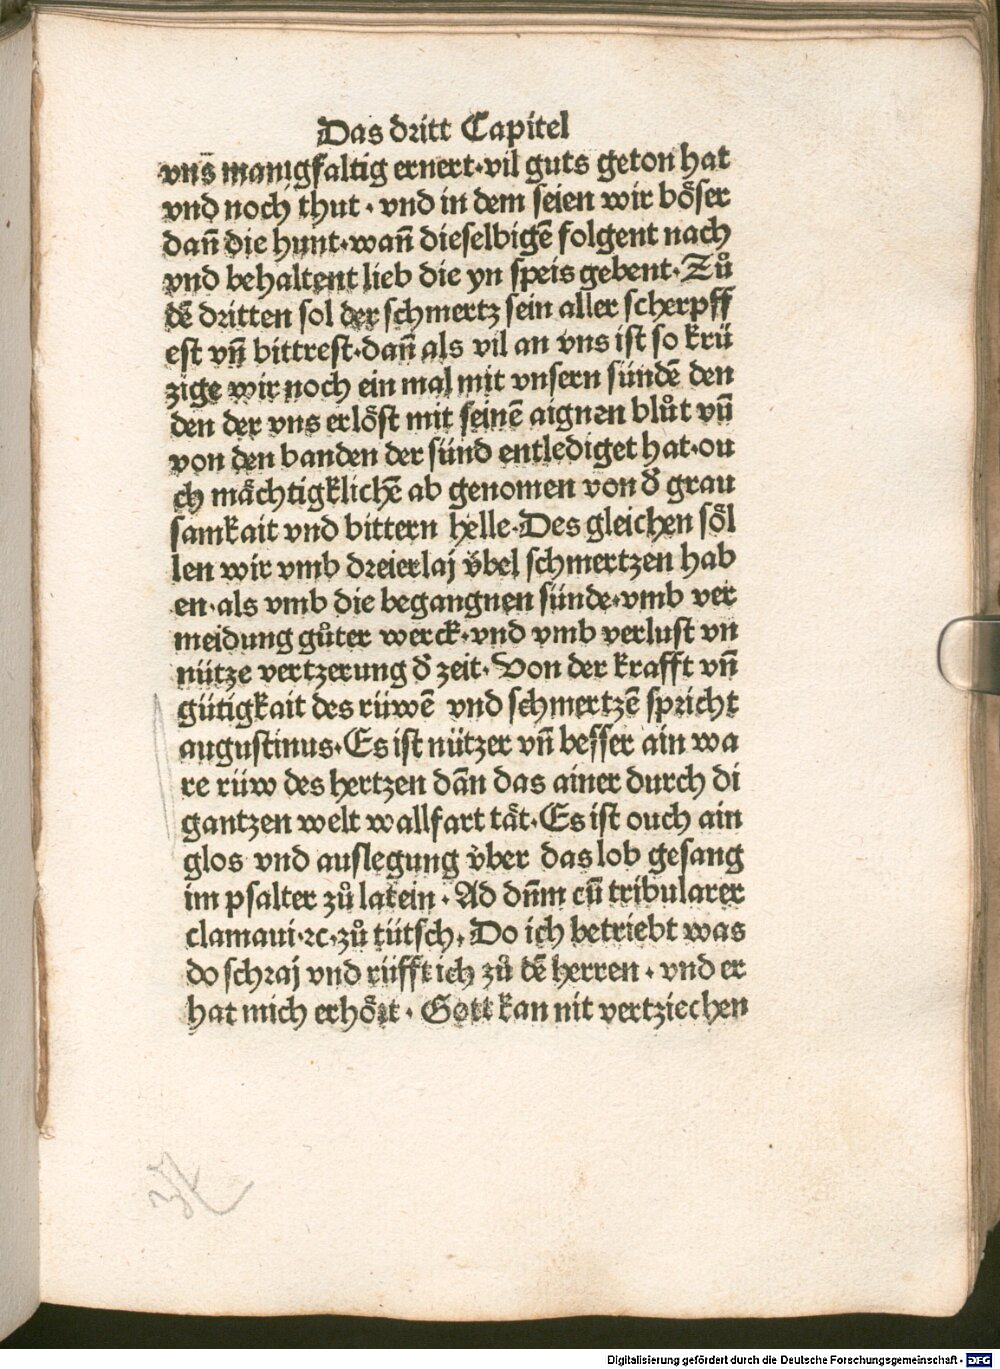 Das dritt Capitel
vns̄ manigfaltig ernert·vil guts geton hat
vnd noch thut · vnd in dem seien wir bo̊ser
dan̄ die hunt·wan̄ dieselbigē folgent nach
vnd behaltent lieb die yn speis gebent·Zů
dē dritten sol der schmertz sein aller scherpff
est vn̄ bittrest·dan̄ als vil an vns ist so krü
zige wir noch ein mal mit vnsern sündē den
den der vns erlöst mit seinē aignen blůt vn̄
von den banden der sünd entlediget hat·ou
ch mächtigklichē ab genomen von d̄ grau
samkait vnd bittern helle·Des gleichen söl
len wir vmb dreierlaj v̈bel schmertzen hab
en·als vmb die begangnen sünde·vmb ver
meidung gůter werck·vnd vmb verlust vn
nütze vertzerung d̄ zeit· Von der krafft vn̄
gütigkait des rüwē vnd schmertzē spricht
augustinus·Es ist nützer vn̄ besser ain wa
re rüw des hertzen dān das ainer durch di
gantzen welt wallfart tät·Es ist ouch ain
glos vnd auslegung v̈ber das lob gesang
im psalter zů latein · Ad dn̄m cū tribularer
clamaui·ꝛc·zů tütsch· Do ich betriebt was
do schraj vnd rüfft ich zů dē herren · vnd er
hat mich erhört · Gott kan nit vertziechen
Digitalisierung gefördert durch die Deutsche Forschungsgemeinschaft - DFG